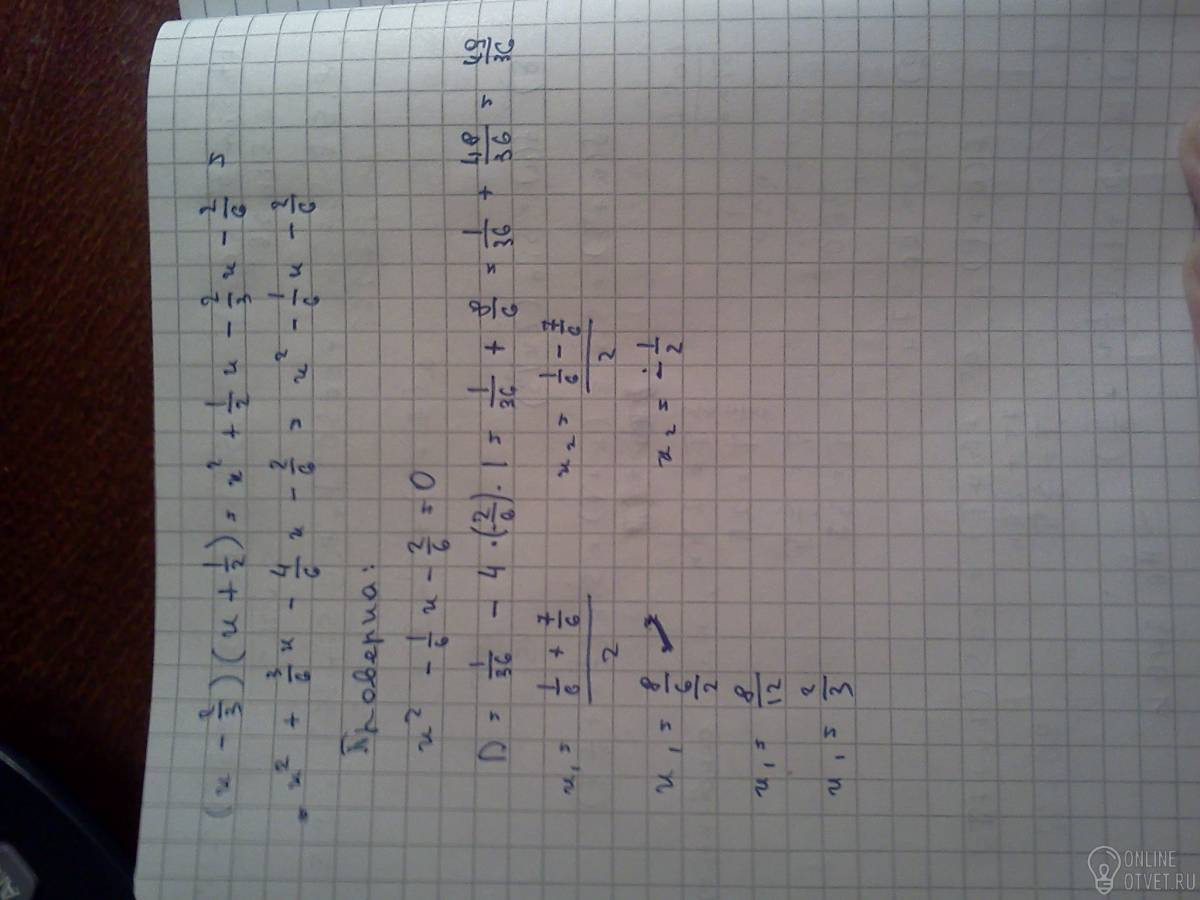 (x - 2/3)(x + 1/2) = x² + 1/2 x - 2/3 x - 2/6 =
= x² + 3/6 x - 4/6 x - 2/6 = x² - 1/6 x - 2/6
Проверка:
x² - 1/6 x - 2/6 = 0
D = 1/36 - 4 · (-2/6) · 1 = 1/36 + 8/6 = 1/36 + 48/36 = 49/36
x₁ = (1/6 + 7/6)/2 x₂ = (1/6 - 7/6)/2
x₁ = 8/6/2 x₂ = - 1/2
x₁ = 8/12
x₁ = 2/3
ONLINE
OTVET.RU